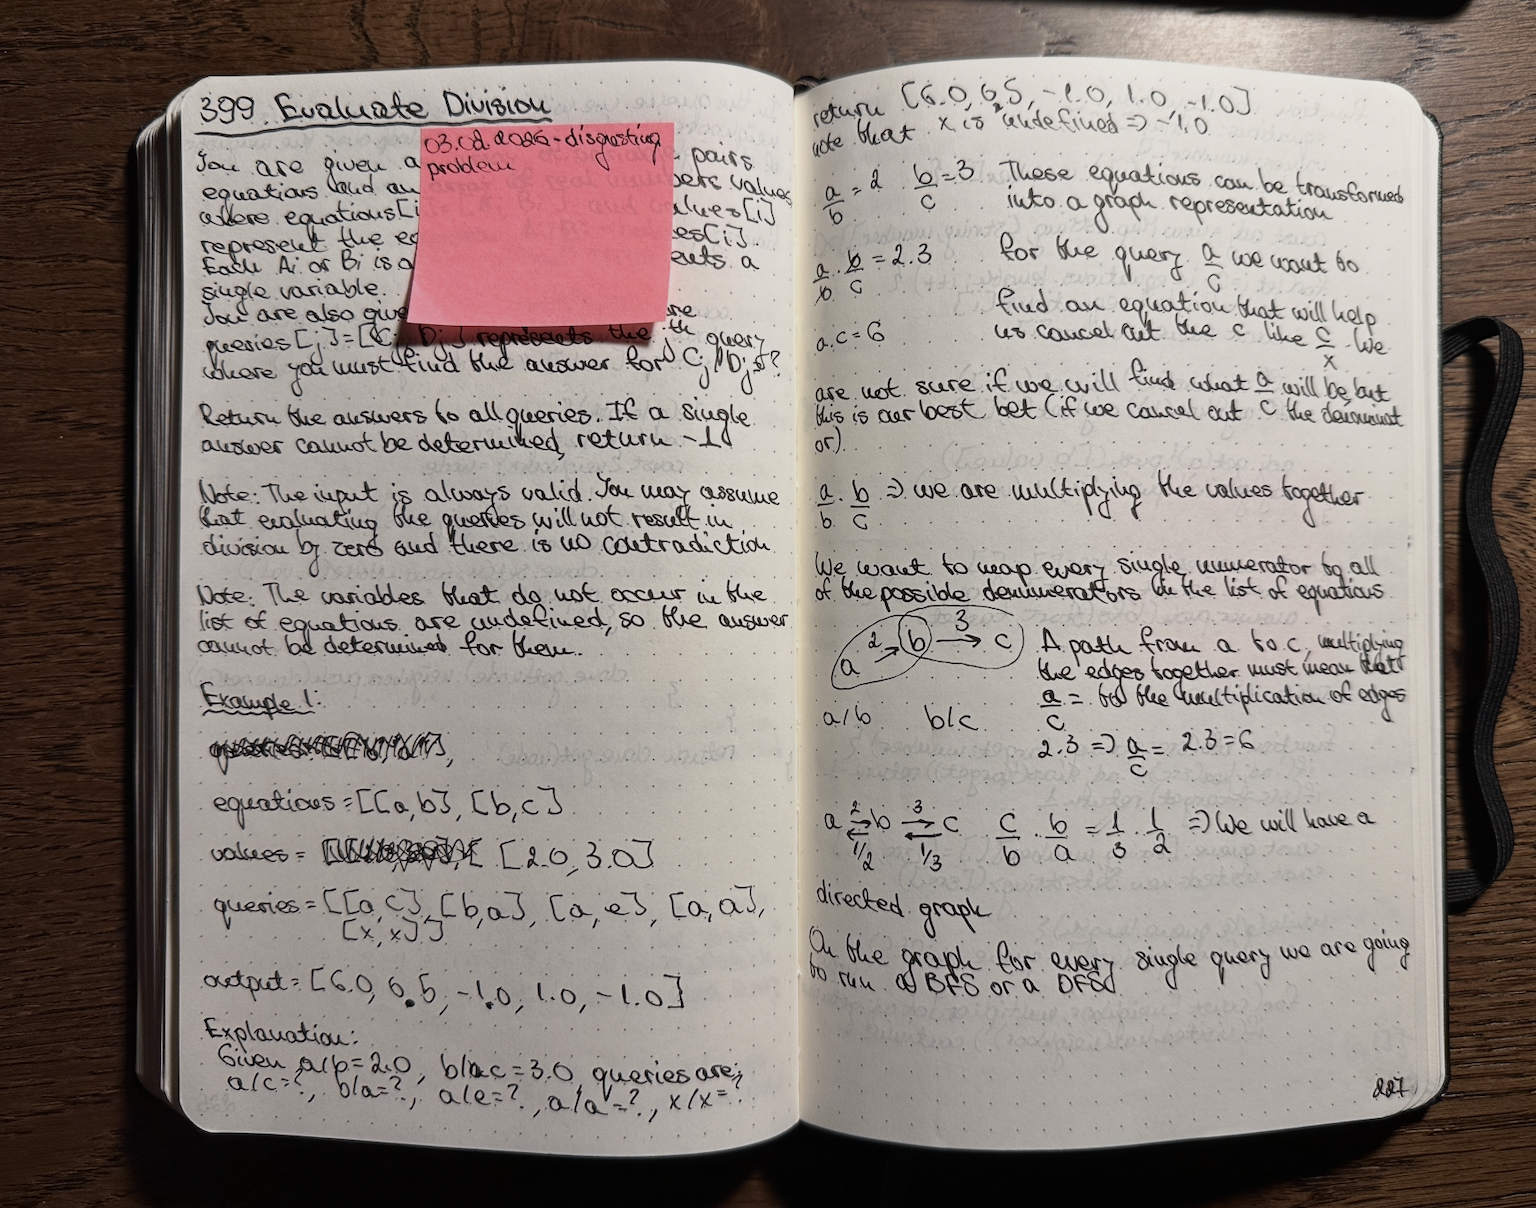 399. Evaluate Division
03.02.2026 - disgusting
problem
You are given a pairs
equations and an values
where equations[i values[i]
represent the es[i].
Each Ai or Bi is a a
single variable.
You are also give
queries[j]=[Cj, Dj] represents the jth query
where you must find the answer for Cj/Dj=?
Return the answers to all queries. If a single
answer cannot be determined, return -1
Note: The input is always valid. You may assume
that evaluating the queries will not result in
division by zero and there is no contradiction
Note: The variables that do not occur in the
list of equations are undefined, so the answer
cannot be determined for them.
Example 1:
equations=[[a,b], [b,c]
values= [2.0, 3.0]
queries=[[a,c], [b,a], [a,e], [a,a],
[x,x]]
output=[6.0, 0.5, -1.0, 1.0, -1.0]
Explanation:
Given a/b=2.0, b/c=3.0, queries are:
a/c=?, b/a=?, a/e=?, a/a=?, x/x=?
return [6.0, 0.5, -1.0, 1.0, -1.0]
note that x is undefined => -1.0
a/b = 2 b/c = 3 These equations can be transformed
into a graph representation
a/b · b/c = 2·3 for the query a/c we want to
find an equation that will help
a.c=6 us cancel out the c like c/x. We
are not sure if we will find what a/c will be but
this is our best bet (if we cancel out c the denominat
or).
a/b · b/c => we are multiplying the values together
We want to map every single numerator to all
of the possible denumerators in the list of equations
a 2→ b 3→ c A path from a to c, multiplying
the edges together must mean that
a/c = to the multiplication of edges
a/b b/c
2.3 => a/c = 2.3=6
a 2⇄1/2 b 3⇄1/3 c c/b · b/a = 1/3 · 1/2 => We will have a
directed graph
On the graph for every single query we are going
to run a BFS or a DFS
227